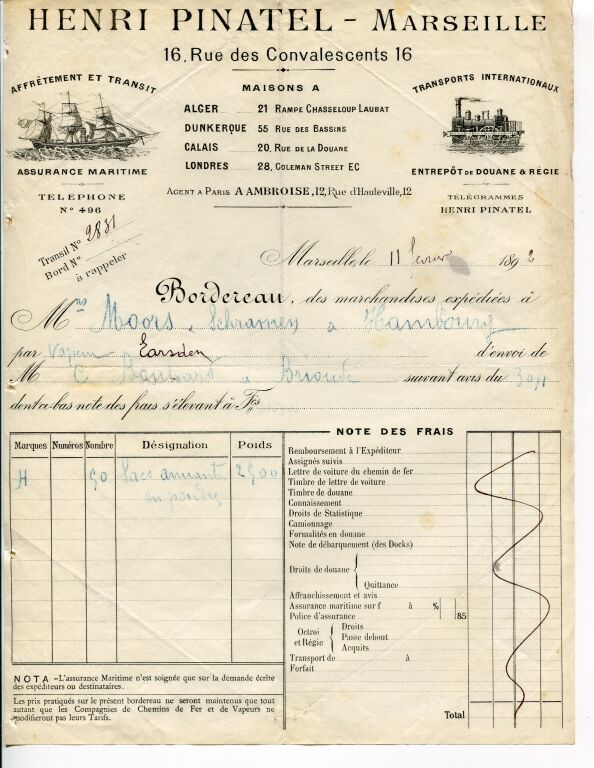 HENRI PINATEL - MARSEILLE
16, Rue des Convalescents 16
AFFRÊTEMENT ET TRANSIT
ASSURANCE MARITIME
TELEPHONE
N° 496
Transit N° 2881
Bord N°
à rappeler
MAISONS A
ALGER 21 RAMPE CHASSELOUP LAUBAT
DUNKERQUE 55 RUE DES BASSINS
CALAIS 20, RUE DE LA DOUANE
LONDRES 28, COLEMAN STREET EC
AGENT A PARIS A AMBROISE, 12, Rue d'Hauteville, 12
TRANSPORTS INTERNATIONAUX
ENTREPÔT DE DOUANE & RÉGIE
TÉLÉGRAMMES
HENRI PINATEL
Marseille, le 11 février 1892
Bordereau, des marchandises expédiées à
Mrs Moors, Schramey a Hambourg
par Vapeur Earsden d'envoi de
M C a Brioude suivant avis du
dont ci-bas note des frais s'élevant à Fcs
Marques Numéros Nombre Désignation Poids
H 50 Sacs amiante 2500
en poudre
NOTE DES FRAIS
Remboursement à l'Expéditeur
Assignés suivis
Lettre de voiture du chemin de fer
Timbre de lettre de voiture
Timbre de douane
Connaissement
Droits de Statistique
Camionnage
Formalités en douane
Note de débarquement (des Docks)
Droits de douane {
Quittance
Affranchissement et avis
Assurance maritime sur f à %
Police d'assurance 85
Octroi et Régie { Droits
Passe debout
Acquits
Transport de à
Forfait
Total
NOTA - L'assurance Maritime n'est soignée que sur la demande écrite
des expéditeurs ou destinataires.
Les prix pratiqués sur le présent bordereau ne seront maintenus que tout
autant que les Compagnies de Chemins de Fer et de Vapeurs ne
modifieront pas leurs Tarifs.